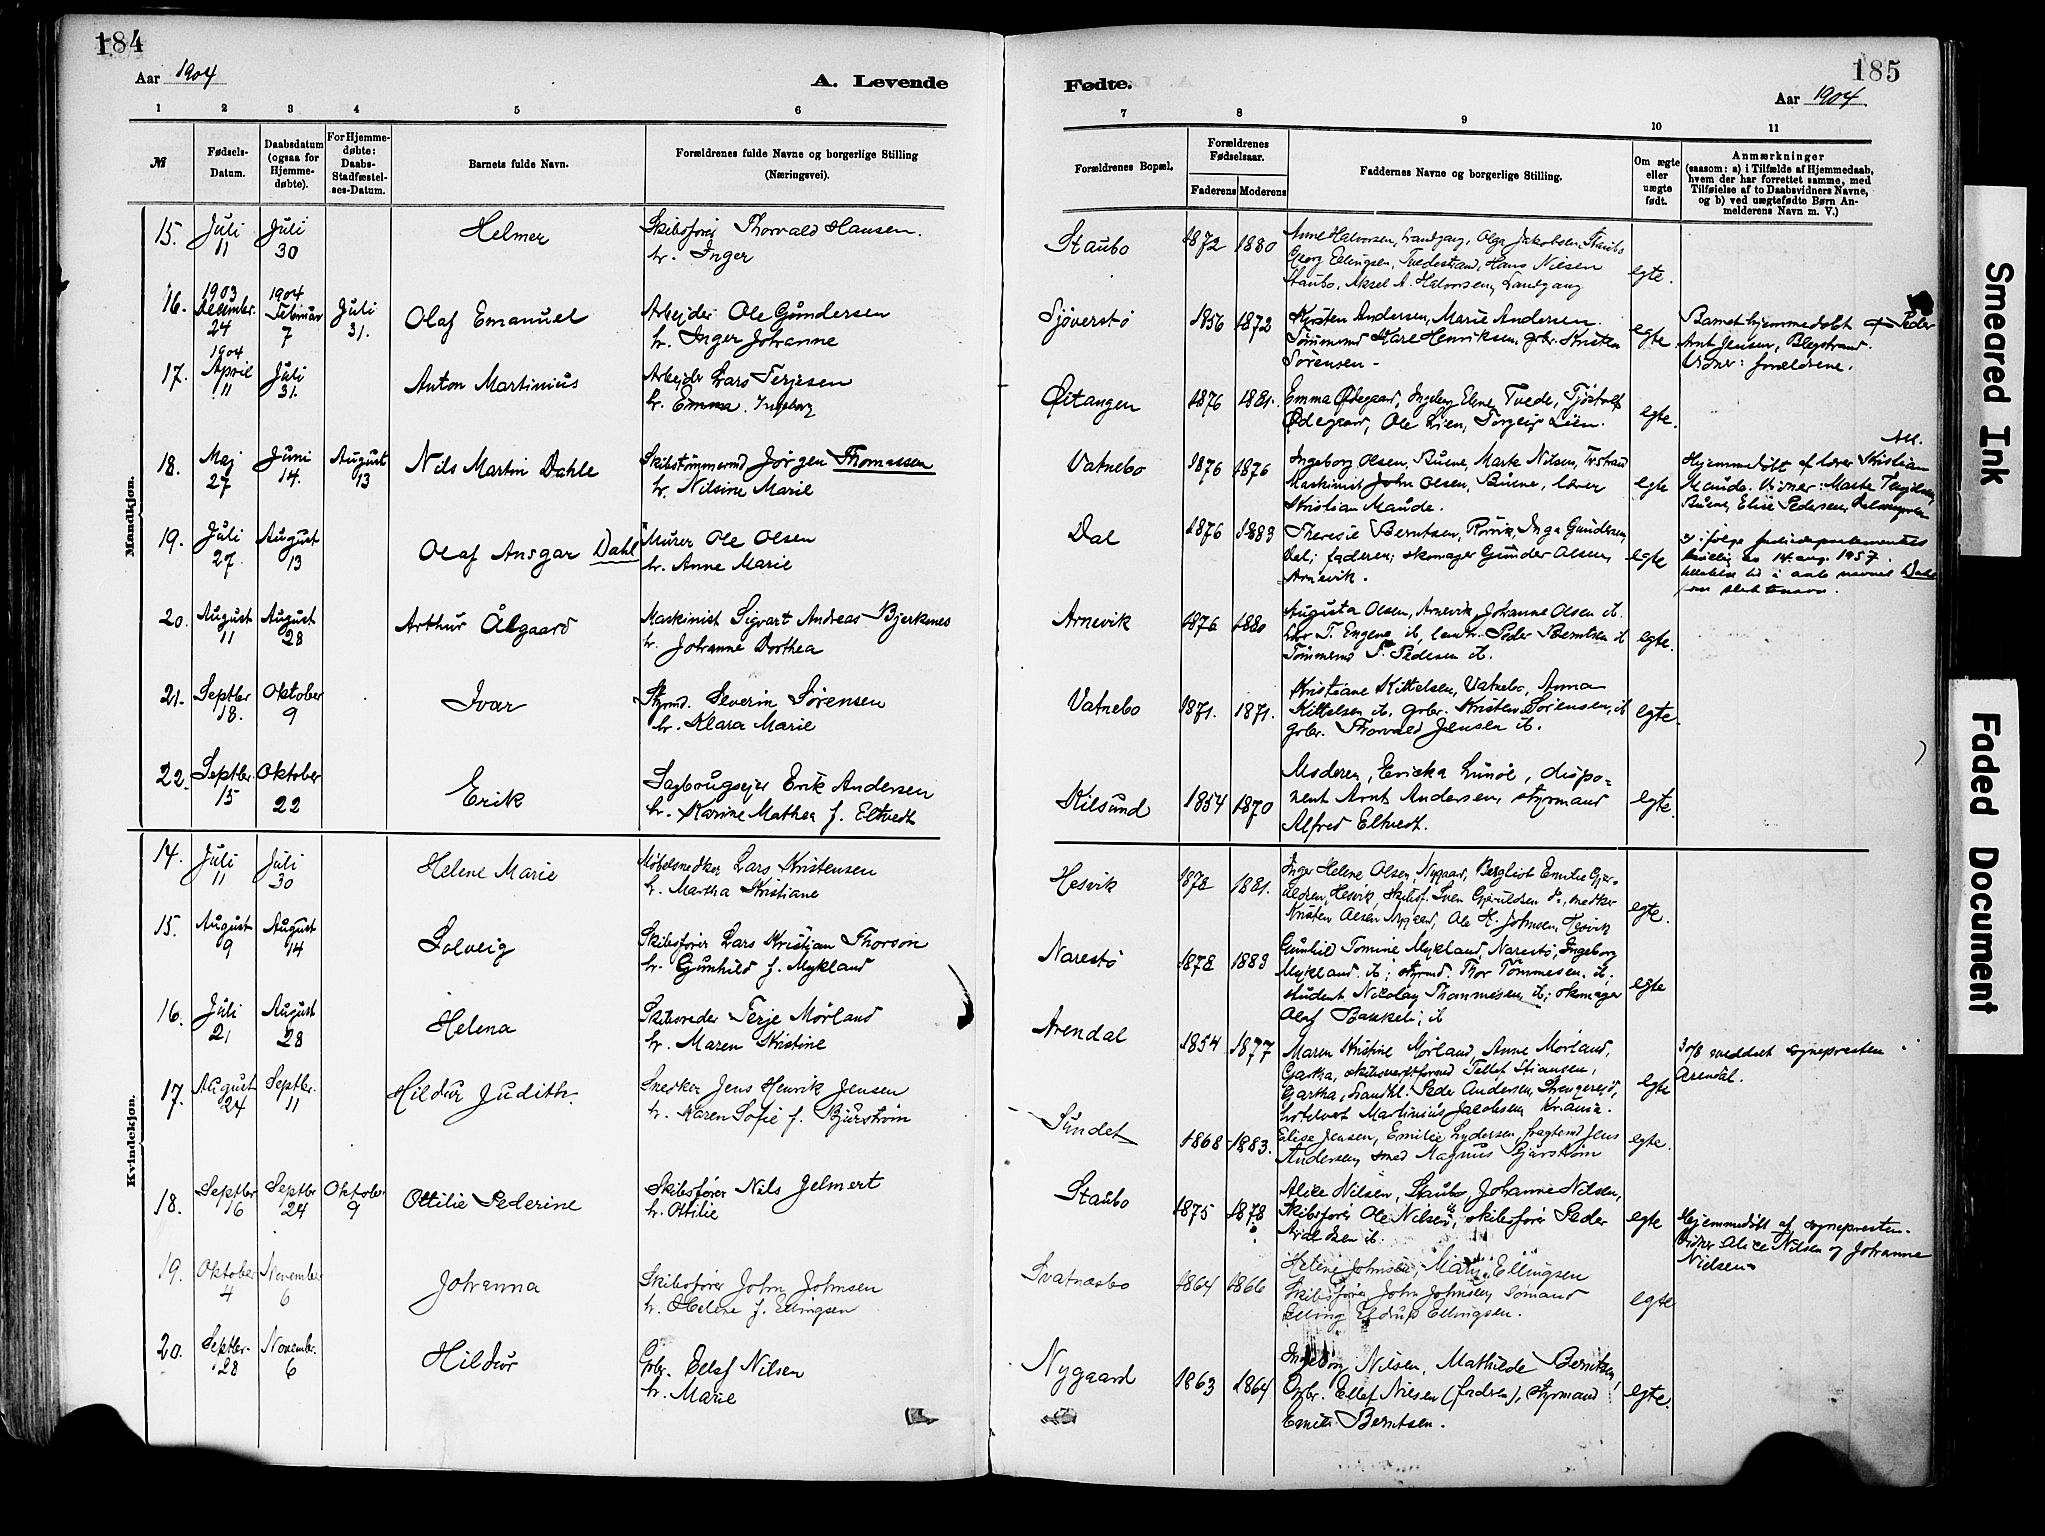 184
Aar 1904
A. Levende
1 2 3 4 5 6
№
Fødsels-
Datum.
Daabsdatum
(ogsaa for
Hjemme-
døbte).
For Hjemme-
døbte:
Daabs-
Stadfæstel-
ses-Datum.
Barnets fulde Navn.
Forældrenes fulde Navne og borgerlige Stilling
(Næringsvei).
Mandkjøn.
15. Juli 11 Juli 30 Helmer Skibsfører Thorvald Hansen.
h. Inger
16. 1903 December 24 1904 Februar 7 Juli 31. Olaf Emanuel Arbejder Ole Gundersen
h. Inger Johanne
17. 1904 April 11 Juli 31. Anton Martinius Arbejder Lars Terjesen
h. Emma. Ingeborg
18. Maj 27 Juni 14. August 13 Nils Martin Dahle Skibstømmermd Jørgen Thomassen
h. Nilsine Marie
19. Juli 27. August 13 Olaf Ansgar Dahl Murer Ole Olsen
h. Anne Marie
20. August 11 August 28 Arthur Ålgaard Maskinist Sigvart Andreas Bjerkenes
h. Johanne Dorthea
21. Septbr 18. Oktober 9 Ivar Styrmd. Severin Sørensen
h. Klara Marie
22. Septbr. 15 Oktober 22 Erik Sagbrugsejer Erik Andersen
h. Karine Mathea f. Eltvedt
Kvindekjøn.
14. Juli 11 Juli 30 Helene Marie Møbelsnedker Lars Kristensen
h. Martha Kristiane
15. August 9 August 14 Solveig Skibsfører Lars Kristian Thorson
h. Gunhild f. Mykland
16. Juli 21 August 28 Helena Skibsreder Terje Mørland
h. Maren Kristine
17. August 24 Septbr. 11 Hildur Judith. Snedker Jens Henrik Jensen
h. Karen Sofie f. Bjurstrøm
18. Septbr 16 Septbr 24 Oktober 9 Ottilie Pederine Skibsfører Nils Jelmert
h. Ottilie
19. Oktober 4 November 6 Johanna Skibsfører John Johnsen
h. Helene f. Ellingsen
20. Septbr. 28 November. 6 Hildur Gbr. Ellef Nilsen
h. Marie
185
Fødte.
Aar 1904
7 8 9 10 11
Forældrenes Bopæl.
Forældrenes
Fødselsaar.
Faderens Moderens
Faddernes Navne og borgerlige Stilling.
Om ægte
eller
uægte
født.
Anmærkninger
(saasom: a) i Tilfælde af Hjemmedaab,
hvem der har forrettet samme, med
Tilføielse af to Daabsvidners Navne,
og b) ved uægtefødte Børn An-
melderens Navn m. V.)
Staubo 1872 1880 Anne Halvorsen, Landgang, Olga Jakobsen, Staubo
Georg Ellingsen, Tvedestrand, Hans Nilsen
Staubo, Aksel A. Halvorsen, Landgang
egte.
Sjøverstø 1856 1872 Kirsten Andersen, Marie Andersen.
Tømmermd Kare Henriksen, gbr. Kristen
Sørensen-
egte Barnet hjemmedøbt af Peder
Arnt Jensen, Blegstrand.
Vidner: forældrene.
Øitangen 1876 1881. Emma Ødegaard, Ingeborg Elene Tvede, Tjøstolf
Ødegaard, Ole Lien, Torgeir Lien.
egte.
Vatnebo 1876 1876 Ingeborg Olsen, Buene, Marte Nilsen,
Maskinist John Olsen, Buene, lærer
Kristian Maude.
egte Hjemmedøbt af lærer Kristian
Maude. Vidner: Marte
Buene, Elise Pedersen,
Dal 1876 1883 Theresie Berntsen, Rørvik, Inga Gundersen
Dal; faderen; skomager Gunder Olsen,
Arnevik.
egte i følge justisdepartementets
bevilling av 14. aug. 1957
tillatelse til å anta navnet Dahl
som slektsnavn.
Arnevik 1876 1880 Augusta Olsen, Arnevik, Johanne Olsen ib.
T. Engene ib, Peder Berntsen ib
Tømmermd P. Pedersen ib.
egte.
Vatnebo 1871. 1871. Kristiane Kittelsen, Vatnebo, Anna
Kittelsen ib, gbr. Kristen Sørensen, ib
gbr. Thorvald Jensen ib.
egte.
Kilsund 1854 1870 Moderen, Ericka Lunde, dispo-
nent Arnt Andersen, styrmand
Alfred Eltvedt.
egte.
Hesvik 1878 1881. Inger Helene Olsen, Nygaard, Bergliot Emilie Gjer-
uldsen, Hesvik, Skibsf. Sven Gjeruldsen Sr., snedker
Kristen Olsen Nygaard, Ole H. Johnsen, Hesvik
egte.
Narestø 1878 1883 Gunhild Tomine Mykland, Narestø, Ingeborg
Mykland. ib; styrmd. Thor Tommesen. ib.
student Nicolay Thommesen, ib; skomager
Olaf Bakkeli; ib
egte
Arendal 1854 1877 Maren Kristine Mørland, Anne Mørland,
Gartha, skibsværftsformd Tellef Stiansen,
Gartha, Landhl. Peder Andersen, Strengereid,
Martinius Jacobsen, Krania.
egte 30/8 meddelt sognepresten i
Arendal.
Sundet 1868 1883. Elise Jensen, Emilie Lydersen, fragtemd Jens
Andersen, smed Magnus Bjurstrøm
egte.
Staubo 1875 1878 Alice Nilsen, Staubo, Johanne Nilsen,
Skibsfører Ole Nilsen, skibsfører Peder
ib.
egte Hjemmedøbt af sognepresten.
Vidner Alice Nilsen og Johanne
Nielsen
Svatnasbo 1864 1866 Helene Johnsen, Mary Ellingsen
Skibsfører John Johnsen, sømand
Elling Ellingsen.
egte
Nygaard 1863 1864 Ingeborg Nilsen, Mathilde Berntsen,
Gbr. Ellef Nilsen (faderen), styrmand
Emil Berntsen.
egte.
Smeared Ink
Faded Document